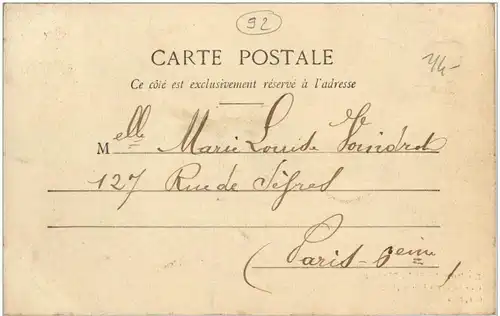 92
CARTE POSTALE
Ce côté est exclusivement réservé à l'adresse
Melle Marie Louise
127 Rue de Sèfres
(Paris-Seine)